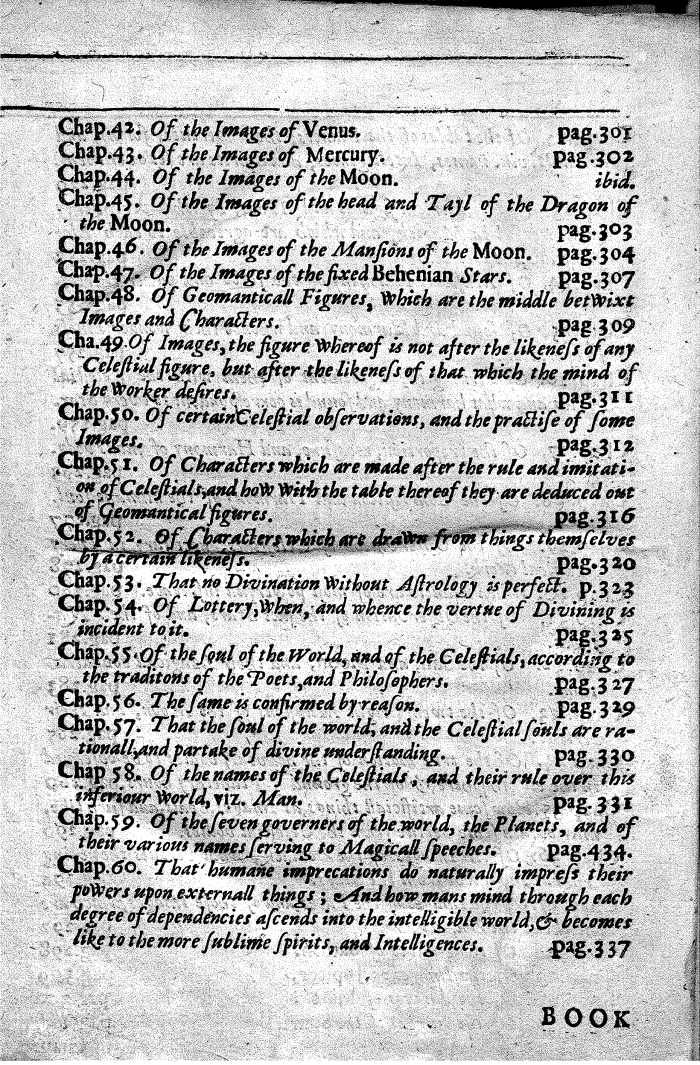 Chap.42. Of the Images of Venus. pag.301
Chap.43. Of the Images of Mercury. pag.302
Chap.44. Of the Images of the Moon. ibid.
Chap.45. Of the Images of the head and Tayl of the Dragon of
the Moon. pag.303
Chap.46. Of the Images of the Manſions of the Moon. pag.304
Chap.47. Of the Images of the fixed Behenian Stars. pag.307
Chap.48. Of Geomanticall Figures, which are the middle betwixt
Images and Characters. pag.309
Cha.49.Of Images, the figure whereof is not after the likeneſs of any
Celeſtial figure, but after the likeneſs of that which the mind of
the worker deſires. pag.311
Chap.50. Of certain Celeſtial obſervations, and the practiſe of ſome
Images. pag.312
Chap.51. Of Characters which are made after the rule and imitati-
on of Celeſtials,and how with the table thereof they are deduced out
of Geomantical figures. pag.316
Chap.52. Of Characters which are drawn from things themſelves
by a certain likeneſs. pag.320
Chap.53. That no Divination without Aſtrology is perfect. p.323
Chap.54. Of Lottery,when, and whence the vertue of Divining is
incident to it. pag.325
Chap.55.Of the ſoul of the World, and of the Celeſtials,according to
the traditons of the Poets,and Philoſophers. pag.327
Chap.56. The ſame is confirmed by reaſon. pag.329
Chap.57. That the ſoul of the world, and the Celeſtial ſouls are ra-
tionall,and partake of divine underſtanding. pag.330
Chap 58. Of the names of the Celeſtials, and their rule over this
inferiour World, viz. Man. pag.331
Chap.59. Of the ſeven governers of the world, the Planets, and of
their various names ſerving to Magicall ſpeeches. pag.434.
Chap.60. That humane imprecations do naturally impreſs their
powers upon externall things; And how mans mind through each
degree of dependencies aſcends into the intelligible world,& becomes
like to the more ſublime ſpirits, and Intelligences. pag.337
BOOK